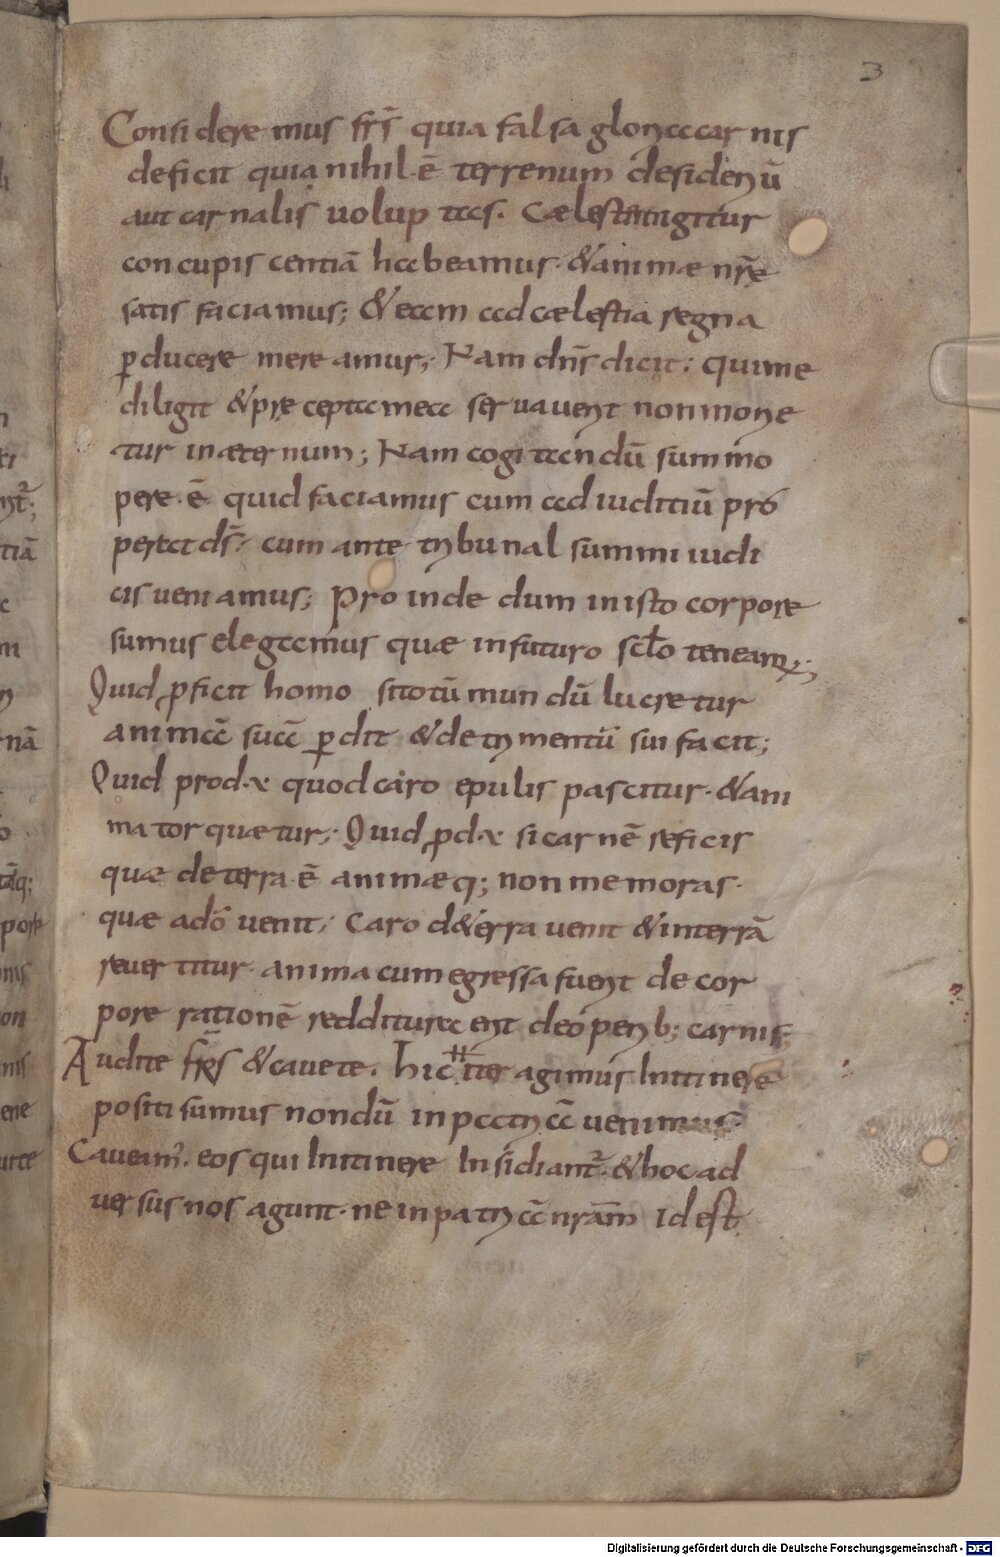 3
Consideremus frs̄ quia falsa gloria carnis
deficit quia nihil ē terrenum desideriū
aut carnalis uoluptas. Cælestem igitur
concupiscentiā habeamus. &animæ nrę̄
satis faciamus; &eam ad cælestia regna
ꝑducere mereamur; Nam dn̄s dicit; Qui me
diligit &pręcepta mea seruauerit non morie
tur in æternum; Nam cogitandū summo
pere ē quid faciamus cum ad iuditiū pro
peret ds̄; cum ante tribunal summi iudi
cis ueniamus; Proinde dum in isto corpore
sumus elegamus quæ in futuro sc̄lo teneam;
Quid ꝓficit homo si totū mundū lucretur
animā suā ꝑdit &detrimentū sui facit;
Quid prod.x quod caro epulis pascitur. &ani
ma torquætur; Quid ꝓd.x si carnē reficis
quæ de terra ē animæq; non memoras.
quæ a dō uenit; Caro d&erra uenit &in terrā
reuertitur. anima cum egressa fuerit de cor
pore rationē redditura erit deo penb; carnis;
Audite frs̄ &cauete. hic iter agimus In itinere
positi sumus nondū in patriā uenimus.
Caueam̄. eos qui In itinere Insidiant̄. &hoc ad
uersus nos agunt. ne in patriā nrām Id est
Digitalisierung gefördert durch die Deutsche Forschungsgemeinschaft - DFG